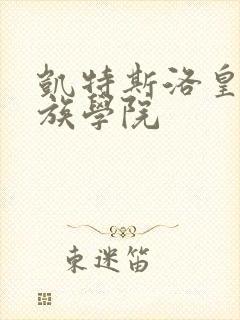 凱特斯洛皇
族學院
束迷笛